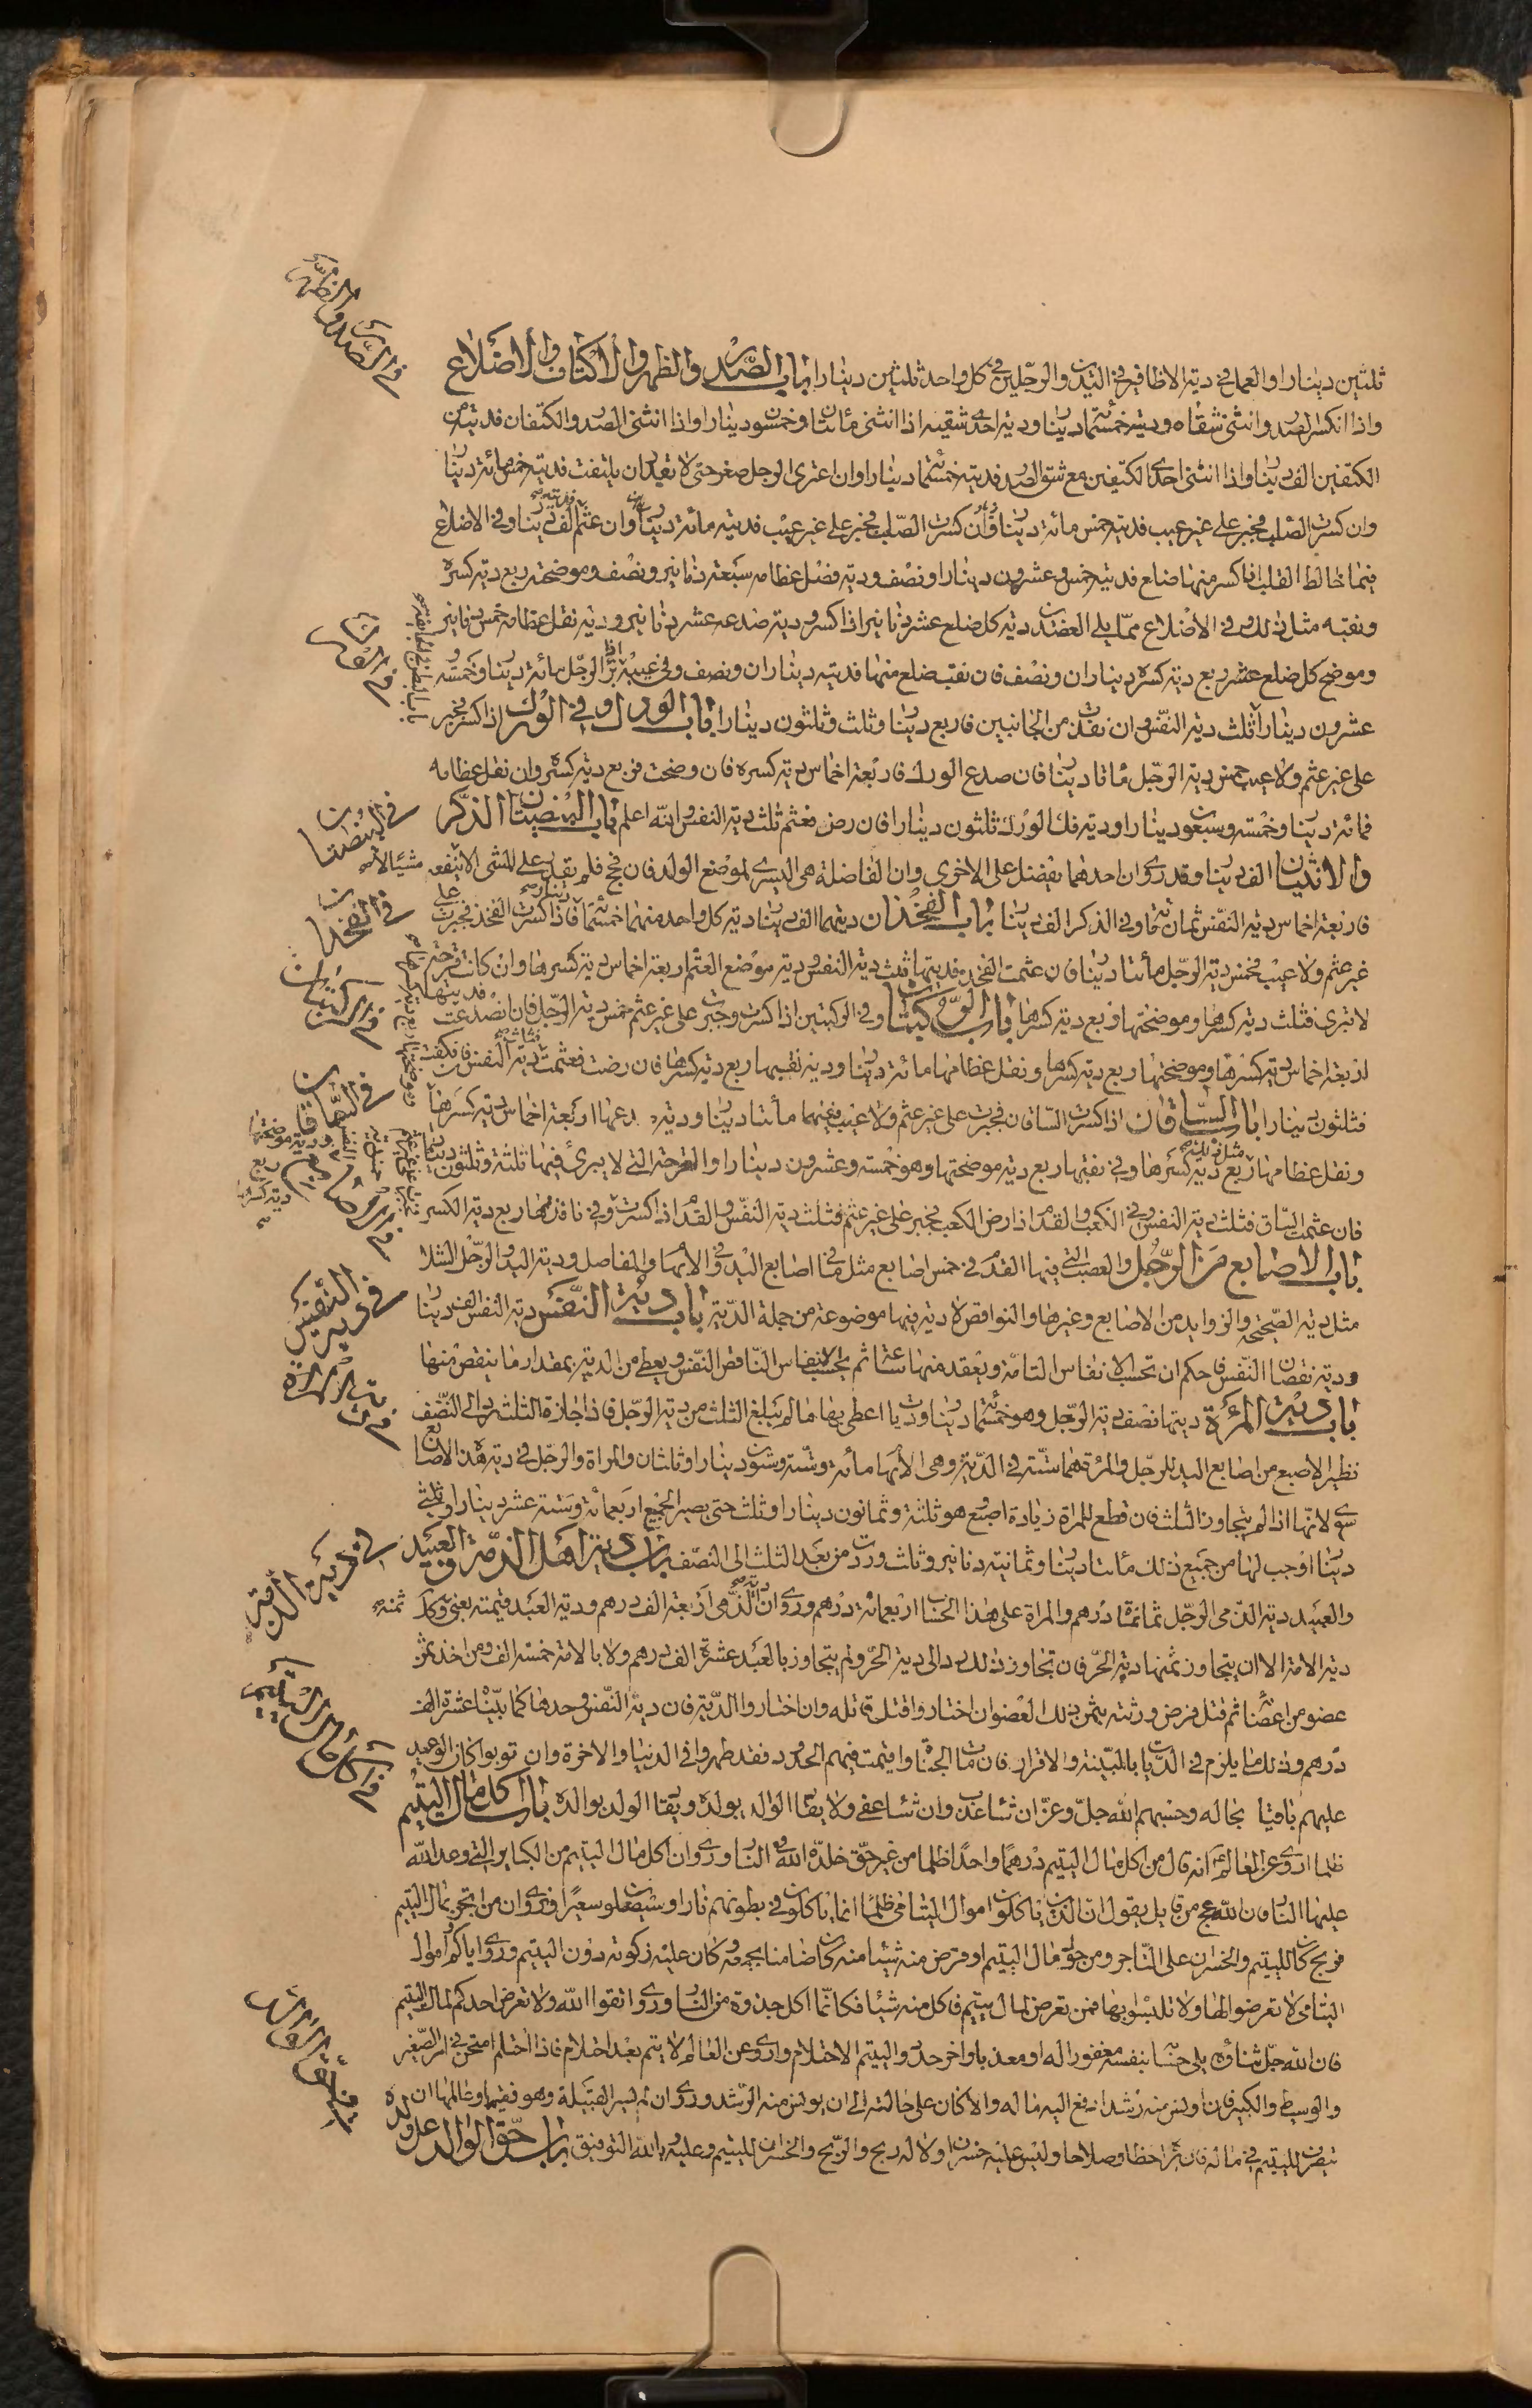 ثلثين دينارا والعمل في دية الاظافير في اليدين والرجلين في كل واحد ثلثين دينارا باب الصدر والظهر والاكتاف والاضلاع
واذا انكسر الصدر وانثنى شقاه فديته خمسمائة دينار ودية احدى شقيه اذا انثنى مأتان وخمسون دينارا واذا انثنى الصدر والكتفان فديته من
الكتفين الف دينار واذا انثنى احدى الكتفين مع شق الصدر فديته خمسمائة دينارا وان اعترى الرجل صغر حتى لا تقدر ان يلتفت فديته خمسمائة دينار
وان كسرت الصلب فجبر على غير عيب فديته خمس مائة دينار وان كسرت الصلب فجبر على غير عيب فديته مائة دينار وان عثم الف دينار وفي الاضلاع
فيما خالط القلب اذا كسر منها ضلع فديته خمس وعشرون دينارا ونصف ودية فصل عظامه سبعة دنانير ونصف وموضحته ربع دية كسره
ونقبه مثل ذلك وفي الاضلاع مما يلي العضدين دية كل ضلع عشر دنانير اذا كسر ودية صدعه عشر دنانير ودية نقل عظامه خمس دنانير
وموضح كل ضلع عشر ربع دية كسره ديناران ونصف فان نقب ضلع منها فديته ديناران ونصف وفي عيبه الرجل مائة دينار وخمسة و
عشرون دينارا ثلث دية النفس وان نفذت من الجانبين فاربع دينار وثلث وثلثون دينارا باب الورك وفي الورك اذا كسر فجبر
على غير عثم ولا عيب خمس دية الرجل مأتا دينار فان صدع الورك فاربعة اخماس دية كسره فان وضحت فربع دية كسره وان نقل عظامه
فمائة دينار وخمسة وسبعون دينارا ودية فك الورك ثلثون دينارا فان رض فعثم ثلث دية النفس والله اعلم باب البيضتان الذكر
والانثيان الف دينار وقد روي ان احدهما يفضل على الاخرى وان الفاضلة هي اليسرى لموضع الولد فان فحج فلم يقدر على المشي الا شيئا لا ينفعه
فاربعة اخماس دية النفس ثمان مائة وفي الذكر الف دينار باب الفخذان ديتهما الف دينار دية كل واحد منهما خمسمائة دينار فاذا كسرت الفخذ فجبرت على
غير عثم ولا عيب فخمس دية الرجل مأتا دينار فان عثمت الفخذ فديتها ثلث دية النفس ودية موضع العثم اربعة اخماس دية كسرها وان كانت قرحة
لا تبرى فثلث دية كسرها وموضحتها ربع دية كسرها باب الركبتان وفي الركبتين اذا كسرت وجبرت على غير عثم خمس دية الرجل فان انصدعت فديتها
اربعة اخماس دية كسرها وموضحتها ربع دية كسرها ونقل عظامها مائة دينار ودية نقبها ربع دية كسرها فان رضت فعثمت فثلث دية النفس فان فكت
فثلثون دينارا باب الساقان اذا كسرت الساقان فجبرت على غير عثم ولا عيب ففيهما مأتا دينار ودية صدعها اربعة اخماس دية كسرها
ونقل عظامها مثل ذلك ربع دية كسرها وفي نقبها ربع دية موضحتها وهو خمسة وعشرون دينارا والقرحة التي لا يبرئ فيها ثلثة وثلثون دينارا
فان عثمت الساق فثلث دية النفس وفي الكعب والقدم اذا رض الكعب فجبر على غير عثم فثلث دية النفس والقدم اذا كسرت وفي نافذتها ربع دية الكسر
باب الاصابع من الرجل والعصب التي فيها القدم في خمس اصابع مثل ما في اصابع اليد في الابهام والمفاصل ودية اليد والرجل الشلا
مثل دية الصحيحة والزوايد من الاصابع وغيرها والنواقص لا دية فيها موضوعة من جملة الدية باب دية النفس دية النفس الف دينار
ودية نقصان النفس فالحكم ان تحسب الانفاس التامة ويعقد منها ساعة ثم يحسب الانفاس الناقص النفس ويعطى من الدية بمقدار ما ينقص منها
باب دية المرئة ديتها نصف دية الرجل وهو خمسمائة دينار وديات اعطى بها ما لم يبلغ الثلث من دية الرجل فاذا جازه الثلث رد الى النصف
نظير الاصبع من اصابع اليد للرجل والمرأة هما سيّة في الدية وهي الابهام مائة وستة وستون دينارا وثلثان والمراة والرجل في دية هذا الاصابع
سوى لانها اذا لم يتجاوز الثلث فان قطع للمراة زيادة اصبع وهو ثلثة وثمانون دينارا وثلث حتى يصير الجميع اربعمائة وستة عشر دينارا وثلثي
دينار اوجب لها من جميع ذلك مأتا دينار وثمانية دنانير وثلث وردت من بعد الثلث الى النصف باب دية اهل الذمة والعبيد
والعبيد دية الذمي الرجل ثمانمائة درهم والمراة على هذا الحساب اربعمائة درهم وروي ان دية الذمي اربعة الف درهم ودية العبد قيمته يعني ثمنه وكذلك
دية الامة الا ان يتجاوز ثمنها دية الحر فان تجاوز ذلك رد الى دية الحر ولم يتجاوز بالعبد عشرة الف درهم ولا بالامة خمسة الف ومن اخذ ثمن
عضو من اعضائه ثم قتل فرض ورثته بثمن ذلك العضو ان اختاروا قتل قاتله وان اختاروا الدية فان دية النفس وحدها كما بينا عشرة الف
درهم وذلك ما يلزم في الديات بالبينة والاقرار فان مات الجناة واقيمت فيهم الحدود فقد طهروا في الدنيا والاخرة وان توبوا كان الوعيد
عليهم باقيا بحاله وحسبهم الله جل وعز ان شاء عذب وان شاء عفى ولا يقاد الوالد بولده ويقاد الولد بوالده باب اكل مال اليتيم
ظلما اروي عن العالم انه قال من اكل مال اليتيم درهما واحدا ظلما من غير حق خلده الله في النار وروي ان اكل مال اليتيم من الكباير التي وعد الله
عليها النار فان الله عج من قايل يقول ان الذين ياكلون اموال اليتامى ظلما انما ياكلون في بطونهم نارا وسيصلون سعيرا وروي ان من اتجر بمال اليتيم
فربح كان لليتيم والخسران على التاجر ومن حول مال اليتيم او قرض منه شيئا منه كان ضامنا بجميعه وكان عليه زكوته دون اليتيم وروي اياكم واموال
اليتامى لا تعرضوا لها ولا تلبسوا بها فمن تعرض لمال يتيم فاكل منه شيئا فكانما اكل جذوة من النار وروي اتقوا الله ولا تعرض احدكم لمال اليتيم
فان الله جل ثناؤه يلي حسابه بنفسه مغفورا له او معذبا واخر حدود اليتيم الاحتلام واروي عن العالم لا يتم بعد احتلام فاذا احتلم امتحن في امر الصغير
والوسيط والكبير فان اونس منه رشدا دفع اليه ماله والا كان على حالته الى ان يونس منه الرشد وروي ان لايسر القبيلة وهو فقيها وعالمها ان
يتصرف لليتيم في ماله فان يراه حظا وصلاحا وليس عليه خسران ولا له ربح والربح والخسران لليتيم وعليه وبالله التوفيق باب حق الوالد على ولده
في الصدر والظهر
في الورك
في البيضتان
في الفخذان
في الركبتان
في الساقان
في دية النفس
في دية المراة
في دية الذمة
في اكل مال اليتيم